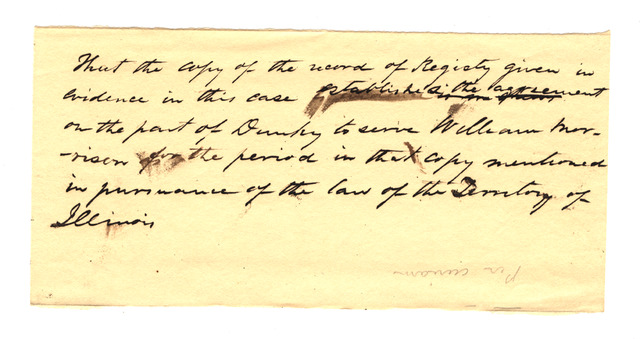 That the copy of the record of Registy given in
evidence in this case establishes the agreement
on the part of Dunky to serve William Mor-
-rison for the period in that copy mentioned
in pursuance of the law of the Territory of
Illinois
Per curiam